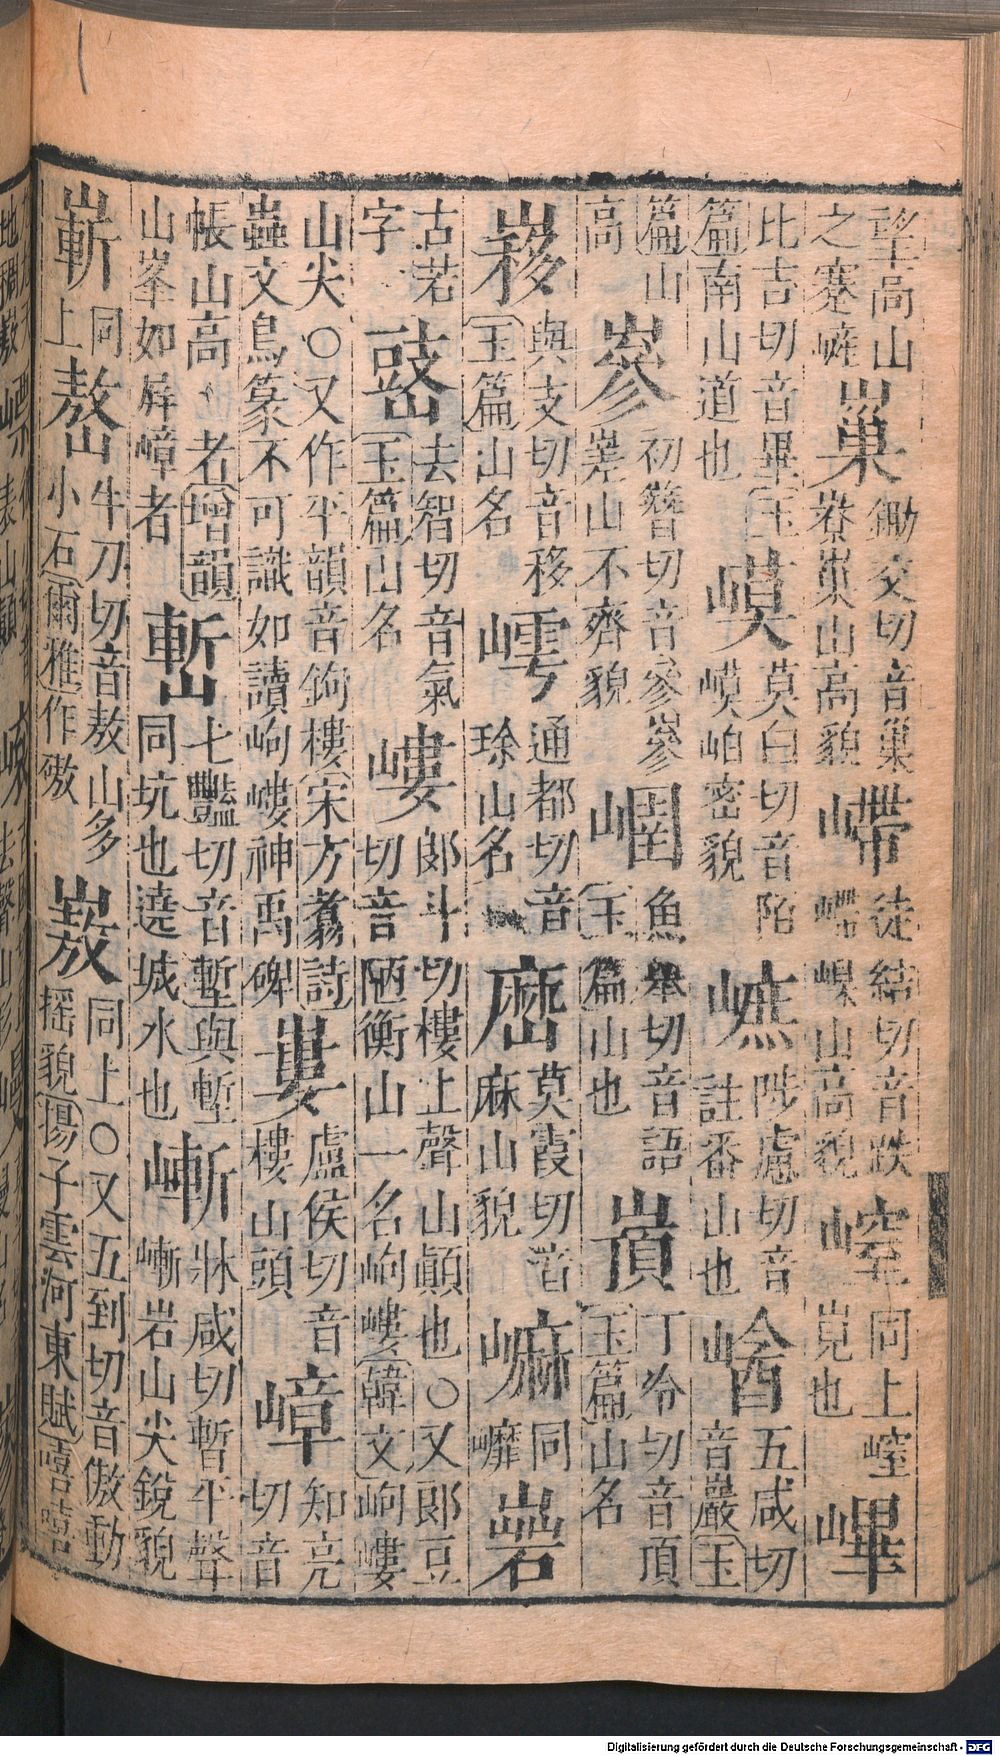 望高山之蹇嵼 巢 鋤交切音巢嶚巢山高貌 嵽 徒結切音跌嵽嵲山高貌 崆 同上崆岲也 嗶
比吉切音畢玉篇南山道也 嗼 莫白切音陌嗼岶密貌 嶣 陟慮切音註番山也 嵅 五咸切音巖玉
篇山高 嵾 初簪切音參嵾嵳山不齊貌 崓 魚舉切音語玉篇山也 嵿 丁冷切音頂玉篇山名
嵺 與支切音移玉篇山名 嶀 通都切音瑹山名 嵍 莫霞切音麻山貌 嘛 同嚰 嵓
古若字 㟚 去智切音氣玉篇山名 嶁 郎斗切樓上聲山顚也○又郎豆切音陋衡山一名岣嶁韓文岣嶁
山尖○又作平韻音鉤樓宋方翥詩蟲文鳥篆不可識如讀岣嶁神禹碑 嵝 盧侯切音樓山頭 嶂 知亮切音
帳山高也者增韻山峯如屛嶂者 塹 七豔切音塹與塹同坑也遶城水也 嶃 牀咸切暫平聲嶃岩山尖銳貌
嶄 同上 嶅 牛刀切音敖山多小石爾雅作磝 嶅 同上○又五到切音傲動搖貌揚子雲河東賦嘻嘻
Digitalisierung gefördert durch die Deutsche Forschungsgemeinschaft - DFG